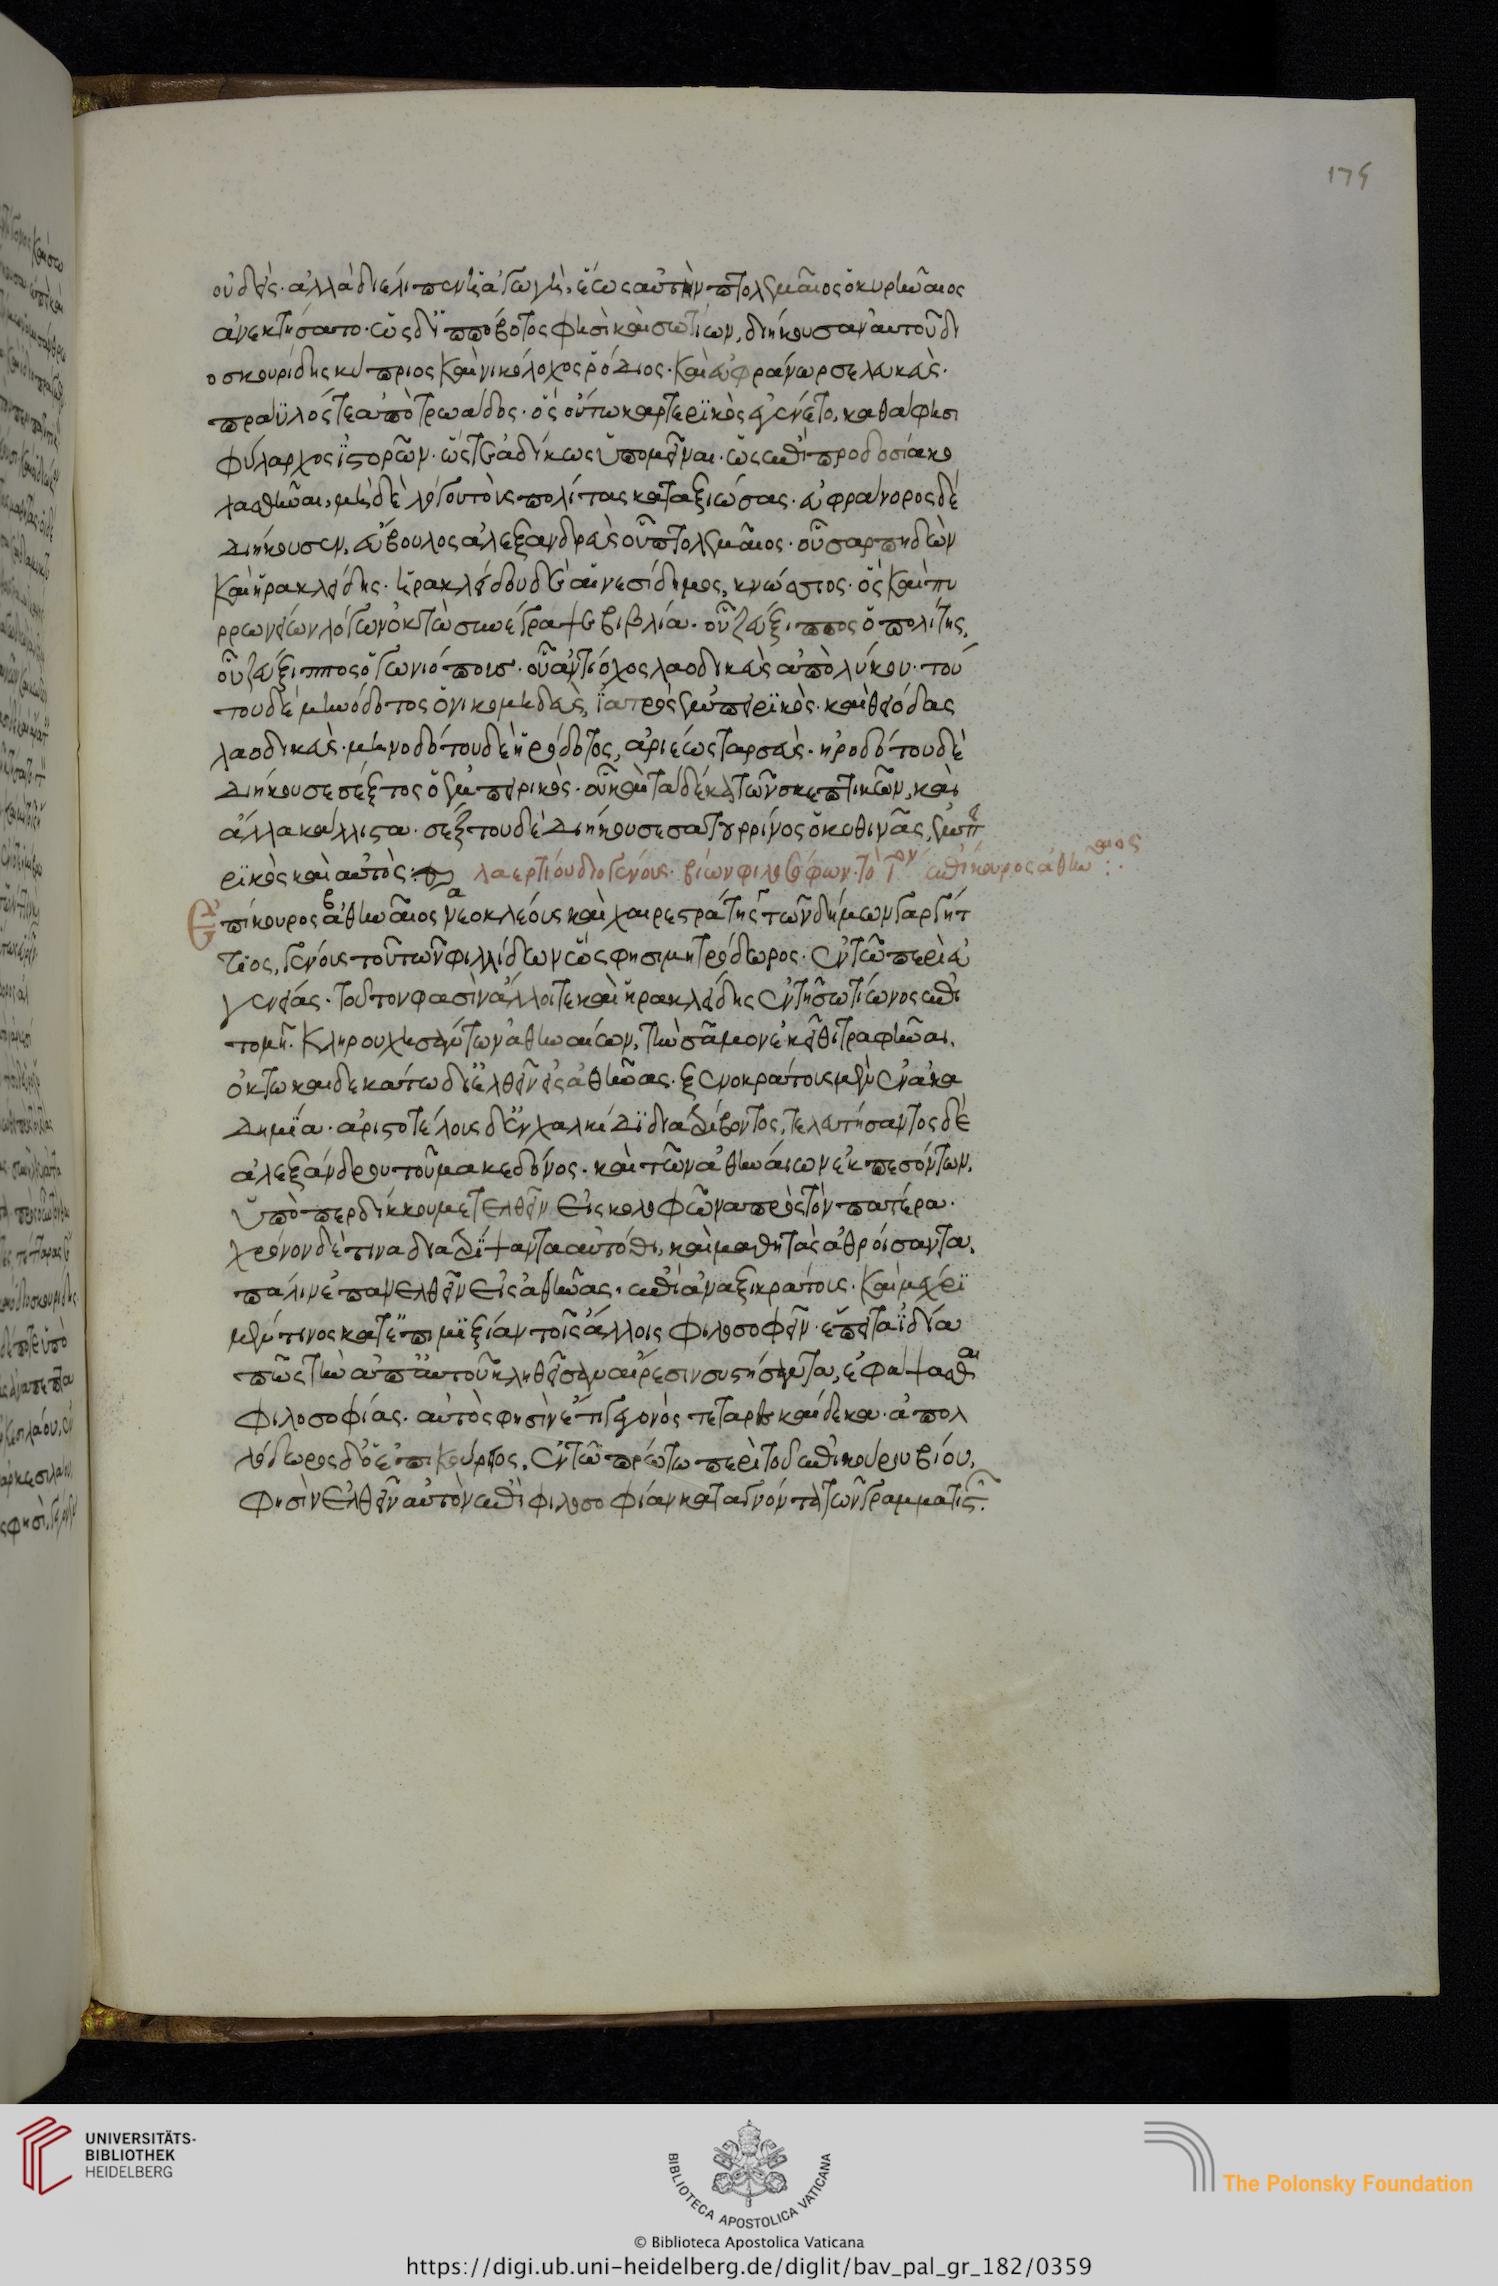 175
οὐδείς· ἀλλὰ διέλιπεν ἡ ἀγωγὴ, ἕως αὐτὴν πτολεμαῖος ὁ κυρηναῖος
ἀνεκτήσατο· ὡς δ' ἱππόβοτος φησὶ καὶ σωτίων, διήκουσαν αὐτοῦ δι
οσκουρίδης κύπριος καὶ νικόλοχος ῥόδιος· καὶ εὐφράνωρ σελευκεὺς·
πραΰλός τε ἀπὸ τρωάδος· ὃς οὕτω καρτερϊκὸς ἐγένετο, καθά φησι
φύλαρχος ἱστορῶν· ὥστε ἀδίκως ὑπομεῖναι· ὡς ἐπὶ προδοσία κο
λασθῆναι, μηδὲ λόγου τοὺς πολίτας καταξιώσας· εὐφράνορος δὲ
διήκουσεν, εὔβουλος ἀλεξανδρεὺς οὗ πτολεμαῖος· οὗ σαρπηδὼν
καὶ ἡρακλείδης· ἡρακλείδου δὲ αἰνεσίδημος, κνώσσιος· ὃς καὶ πυ
ρρωνείων λόγων ὀκτὼ συνέγραψε βιβλία· οὗ ζεύξιππος ὁ πολίτης,
οὗ ζεύξιππος ὁ γωνιόπους· οὗ ἀντίοχος λαοδικεὺς ἀπὸ λύκου· τού
του δὲ μηνόδοτος ὁ νικομηδεὺς, ἰατρὸς ἐμπειρϊκὸς· καὶ θειόδας
λαοδικεὺς· μηνοδότου δὲ ἡρόδοτος, ἀριέως ταρσεὺς· ἡροδότου δὲ
διήκουσε σέξτος ὁ ἐμπειρικὸς· οὗ καὶ τὰ δέκα τῶν σκεπτικῶν, καὶ
ἄλλα κάλλιστα· σέξτου δὲ διήκουσε σατυρρίνος ὁ κυθινᾶς, ἐμπει
ρϊκὸς καὶ αὐτὸς:
λαερτίου διογένους· βίων φιλοσόφων· τὸ ιον ἐπίκουρος ἀθηναῖος:·
ἐπίκουρος ἀθηναῖος νεοκλέους καὶ χαιρεστράτης τῶν δήμων γαργήτ
τϊος, γένους τοῦ τῶν φιλλιδῶν ὥς φησι μητρόδωρος· ἐν τῶ περὶ εὐ
γενείας· τοῦτον φασὶν ἄλλοι τε καὶ ἡρακλείδης ἐν τῆ σωτίωνος ἐπι
τομῆ· κληρουχησάντων ἀθηναίων, τὴν σάμον ἐκεῖθι τραφῆναι,
ὀκτωκαιδεκάτω δὲ ἐλθεῖν εἰς ἀθήνας· ξενοκράτους μὲν ἐν ἀκα
δημϊα· ἀριστοτέλους δὲ ἐν χαλκίδι διατρίβοντος, τελευτήσαντος δὲ
ἀλεξάνδρου τοῦ μακεδόνος· καὶ τῶν ἀθηναίων ἐκπεσόντων,
ὑπὸ περδίκκου μετελθεῖν εἰς κολοφῶνα πρὸς τὸν πατέρα·
χρόνον δὲ τινα διατρίψαντα αὐτόθι, καὶ μαθητὰς ἀθροίσαντα,
πάλιν ἐπανελθεῖν εἰς ἀθήνας· ἐπὶ ἀναξικράτους· καὶ μέχρϊ
μέν τινος κατ' ἐπιμϊξίαν τοῖς ἄλλοις φιλοσοφεῖν· ἔπειτα ἰδία
πῶς τὴν ἀπ' αὐτοῦ κληθεῖσαν αἵρεσιν συστήσαντα, ἐφάψασθαι
φιλοσοφίας· αὐτὸς φησὶν ἔτη γεγονὼς τεταρεσκαίδεκα· ἀπολ
λόδωρος δ' ὁ ἐπικούρειος, ἐν τῶ πρώτω περὶ τοῦ ἐπικούρου βίου,
φησὶν ἐλθεῖν αὐτὸν ἐπὶ φιλοσοφίαν καταγνόντα τῶν γραμματιστῶν·
UNIVERSITÄTS-
BIBLIOTHEK
HEIDELBERG
BIBLIOTECA APOSTOLICA VATICANA
The Polonsky Foundation
© Biblioteca Apostolica Vaticana
https://digi.ub.uni-heidelberg.de/diglit/bav_pal_gr_182/0359